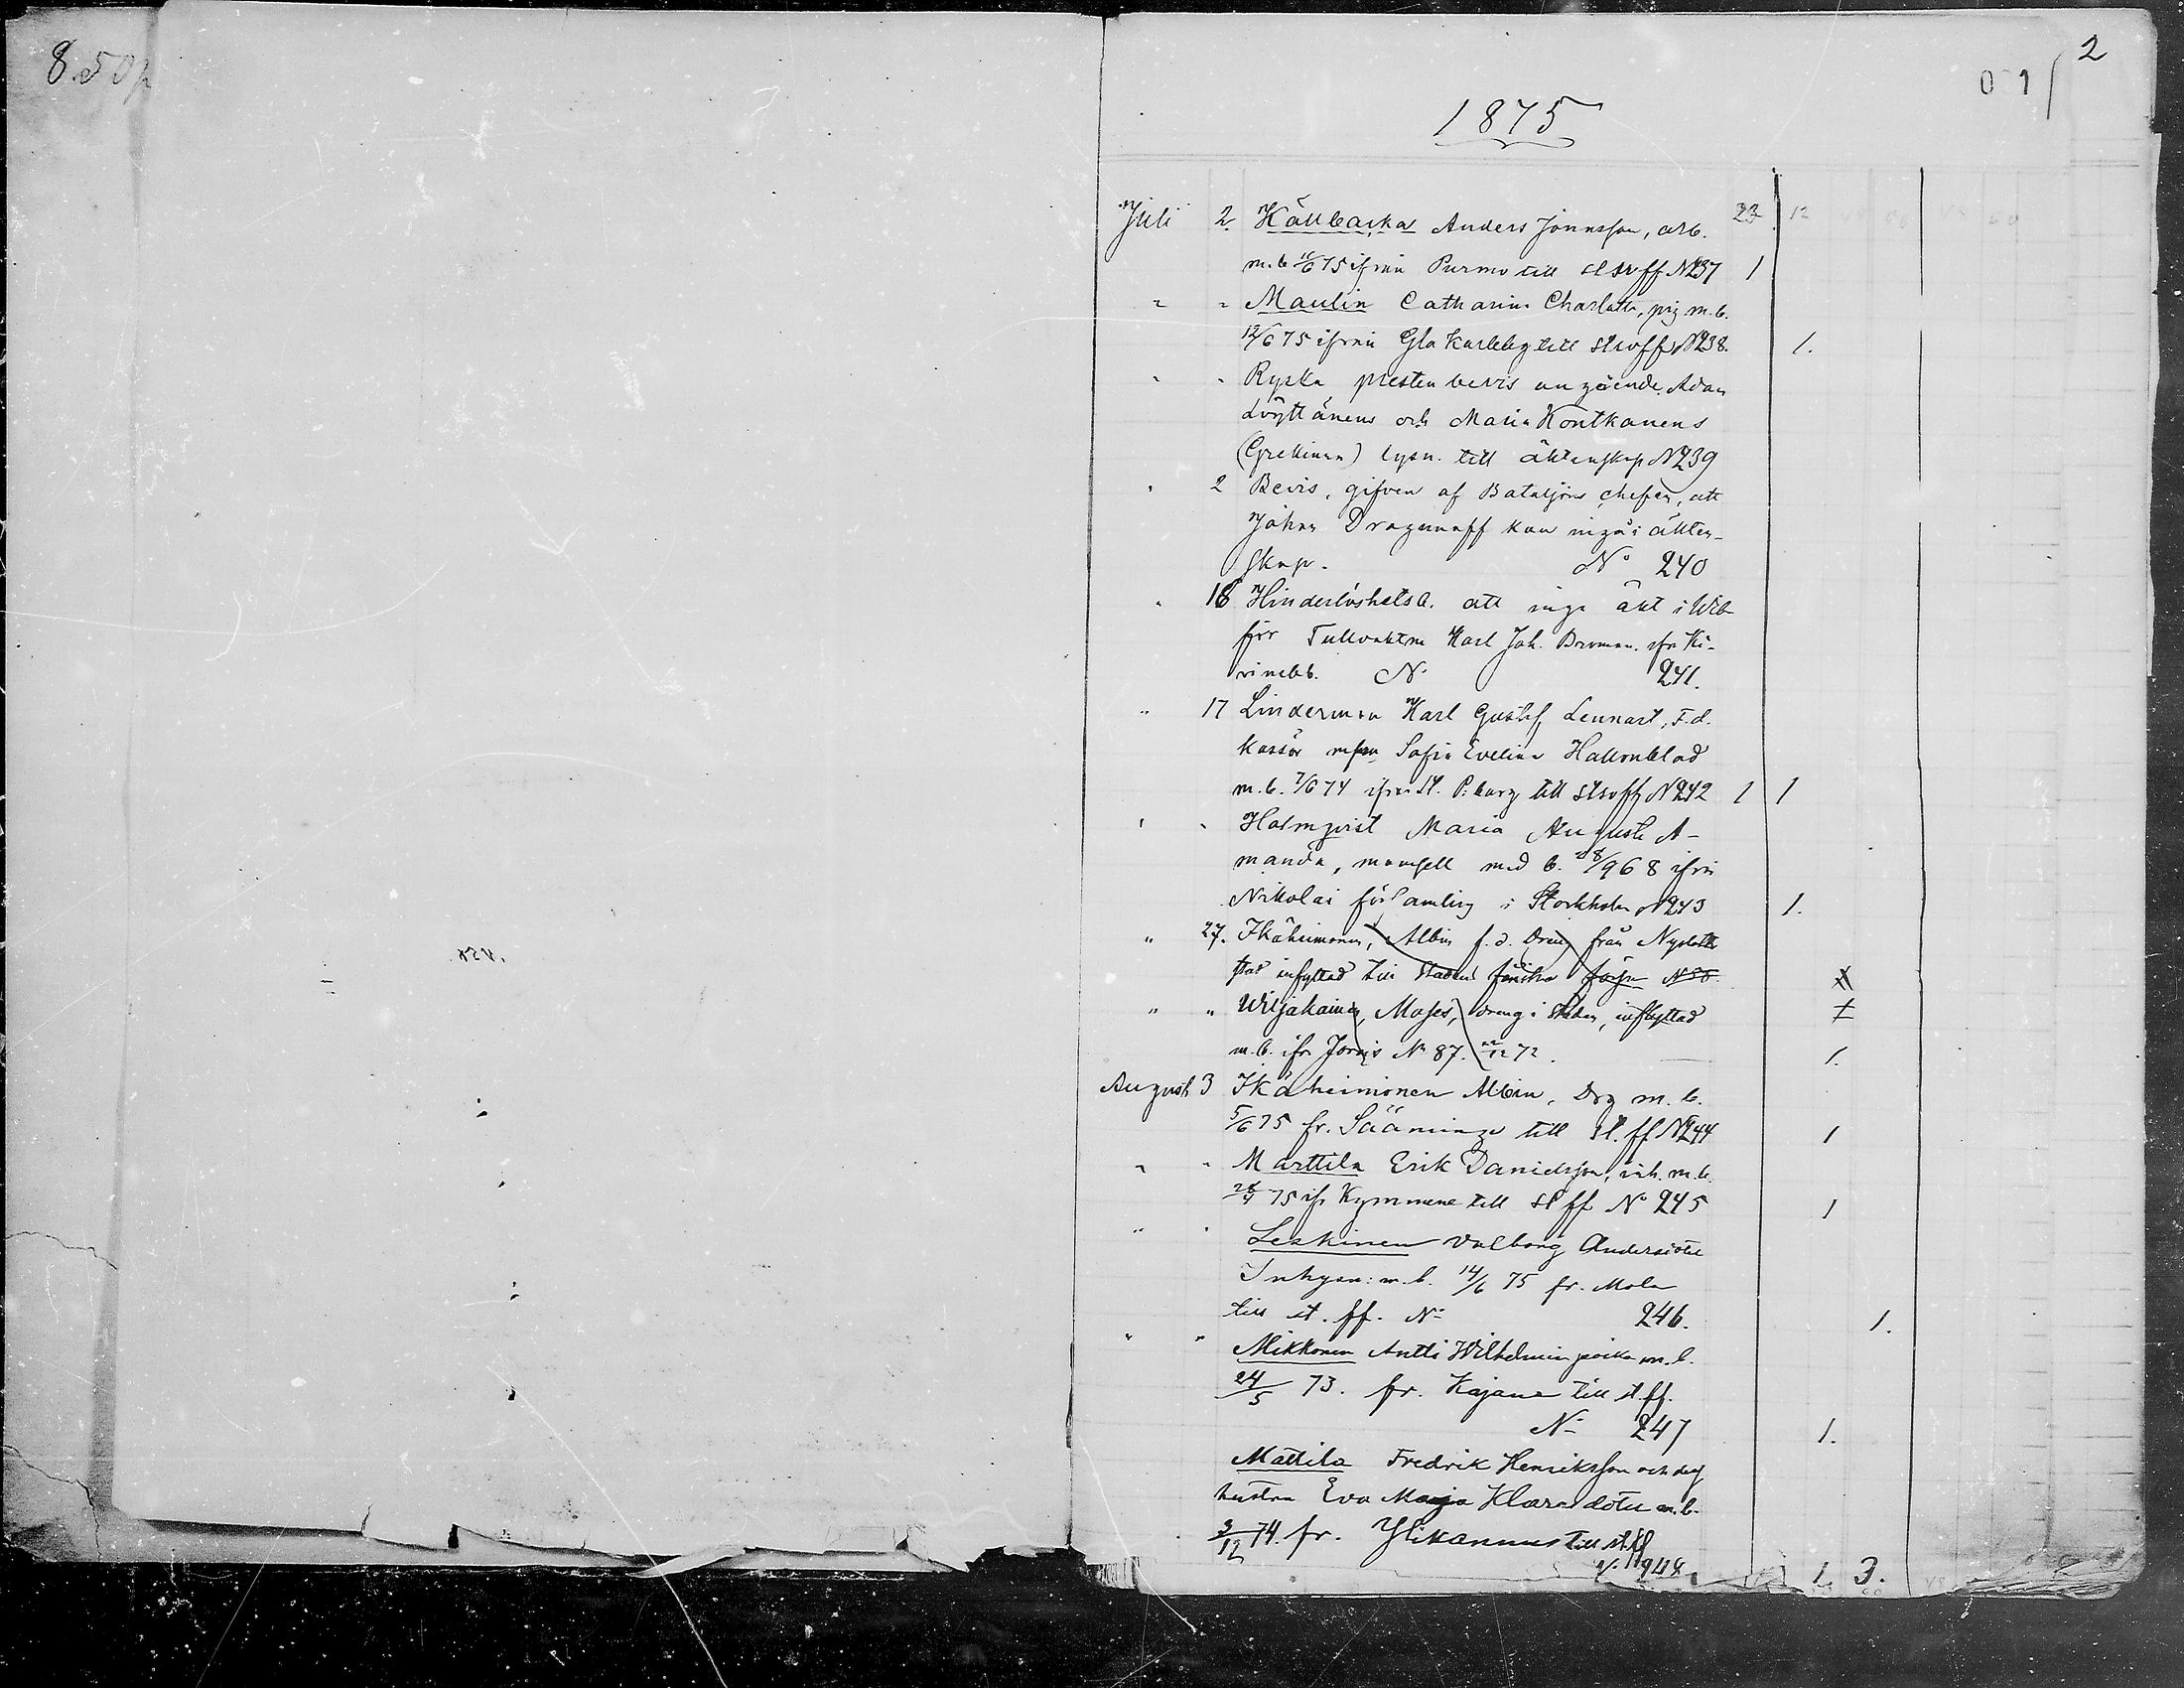 8.50p
2
01
1875
Juli 2. Källbacka Anders Jönnsson, arb. 23 12
m.b 16/6 75 ifrån Purmo till st svff. No 237 1
" " Maulin Catharina Charlotta, pig m.b.
12/6 75 ifrån Gla Karleby till st svff No 238. 1.
" " Ryska presten bevis angående Adam
Löyttänens och Maria Kontkanens
(Grekinna) lysn. till äktenskap No 239
" 2 Bevis, gifven af Bataljons chefen, att
Johan Dragunoff kan ingå i äkten-
skap. No 240
" 18 Hinderlöshetsb. att ingå äkt i Wib
för Tullvaktm Karl Joh. Broman. ifr Ki-
vinebb. No 241.
" 17 Linderman Karl Gustaf Lennart, F.d.
kassör m fru Sofia Evelina Hallonblad
m.b. 7/6 74 ifrån St. P:burg till st svff No 242 1 1
" " Holmqvist Maria Augusta A-
manda, mamsell med b. 28/9 68 ifrån
Nikolai församling i Stockholm No 243 1.
" 27. Ikäheimonen, Albin f.d. Dreng från Nyslotts
stad inflyttad till Stadens finska förs. No 38
" " Wiljakainen, Moses, dreng i staden, inflyttad
m.b. ifr Jorois No 87. 22/12 72. 1.
August 3 Ikäheimonen Albin, Drg m.b.
5/6 75 fr. Sääminge till st. ff No 244 1
" " Marttila Erik Danielsson, inh. m.b.
28/4 75 ifr Kymmene till st ff No 245 1
" " Leskinen Valborg Andersdotter
Inhysn: m.b. 14/6 75 fr. Mola
till st. ff. No 246. 1.
" " Mikkonen Antti Wilhelmin poika m.b.
24/5 73. fr. Kajana till st. ff.
No 247 1.
Mattila Fredrik Henriksson och desf
hustru Eva Maja Klarasdotter m.b.
3/12 74. fr. Ylikannus till st ff
No 248 1 3.